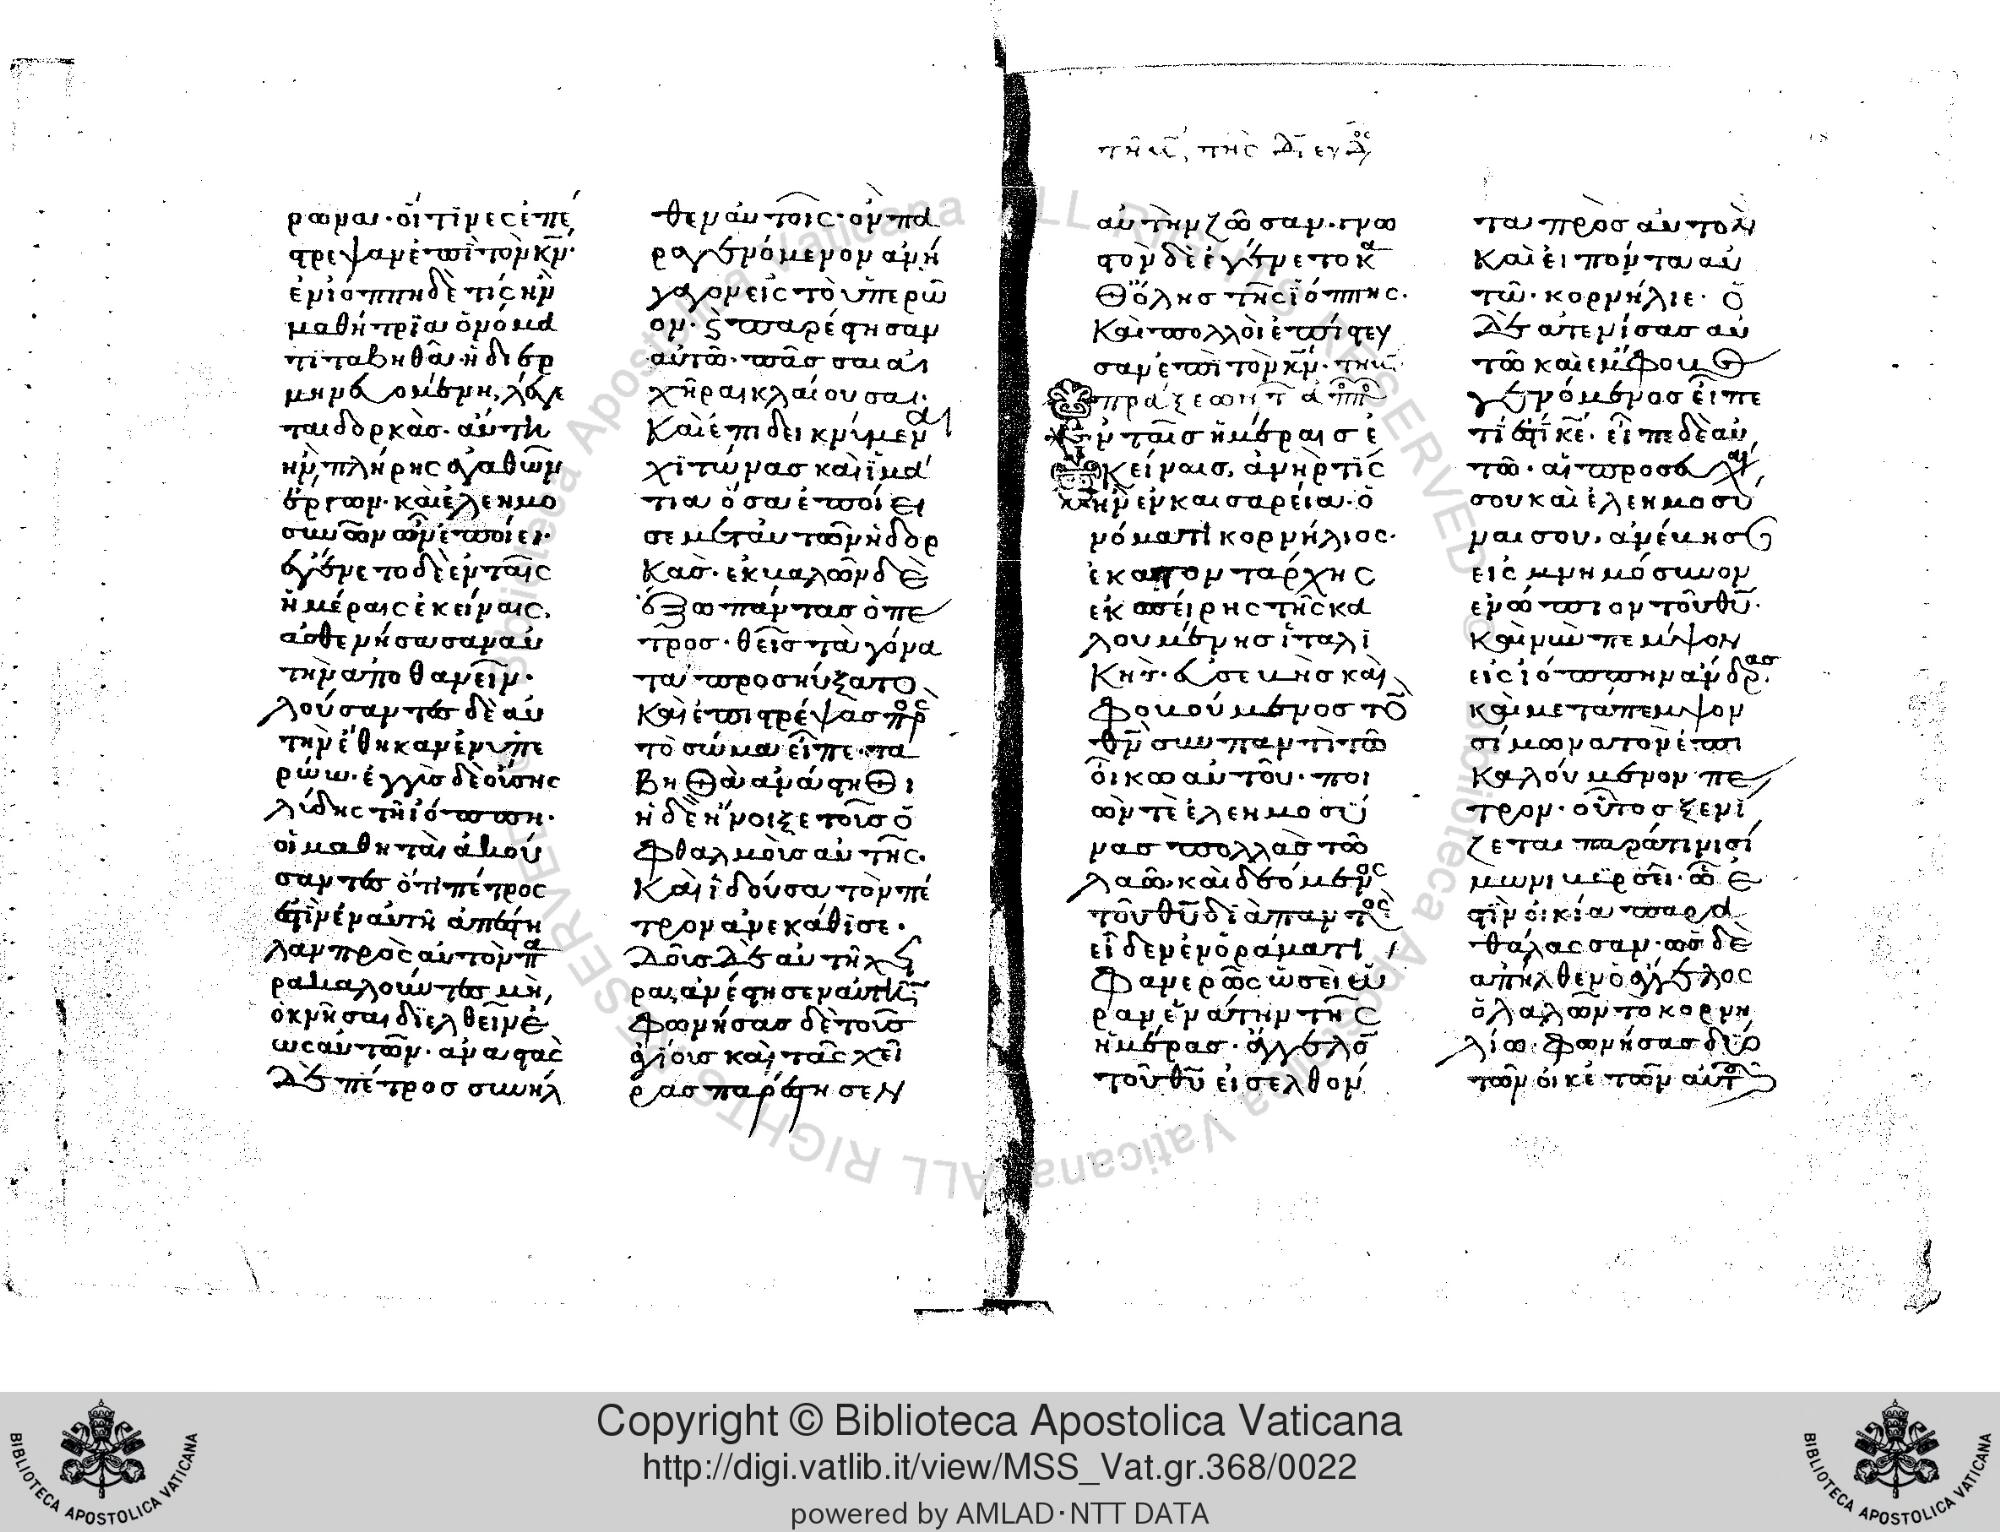 ρωναι· οἵτινες ἐπέ
στρεψαν ἐπὶ τὸν κ̅ν̅·
ἐν ἰόππη δέ τις ἦν
μαθήτρια ὀνόμα
τι ταβηθὰ· ἡ διερ
μηνευομένη, λέγε
ται δορκὰς· αὕτη
ἦν πλήρης ἀγαθῶν
ἔργων· καὶ ἐλεημο
συνῶν ὧν ἐποίει·
ἐγένετο δὲ ἐν ταῖς
ἡμέραις ἐκείναις,
ἀσθενήσασαν αὐ
τὴν ἀποθανεῖν·
λούσαντες δὲ αὐ
τὴν ἔθηκαν ἐν ὑπε
ρώω· ἐγγὺς δὲ οὔσης
λύδης τῆ ἰόππη·
οἱ μαθηταὶ ἀκού
σαντες ὅτι πέτρος
ἐστὶν ἐν αὐτῆ ἀπέστη
λαν πρὸς αὐτὸν πα
ρακαλοῦντες μὴ
ὀκνῆσαι διελθεῖν ἕ
ως αὐτῶν· ἀναστὰς
δὲ πέτρος συνῆλ
θεν αὐτοῖς· ὃν πα
ραγενόμενον ἀνή
γαγον εἰς τὸ ὑπερῶ
ον· καὶ παρέστησαν
αὐτῶ· πᾶσαι αἱ
χῆραι κλαίουσαι·
καὶ ἐπιδεικνύμεναι
χιτῶνας καὶ ἱμά
τια ὅσα ἐποίει
σε μετ' αὐτῶν ἡ δορ
κὰς· ἐκβαλῶν δὲ
ἔξω πάντας ὁ πέ
τρος· θεὶς τὰ γόνα
τα προσηύξατο
καὶ ἐπιστρέψας πρὸς
τὸ σῶμα εἶπε· τα
βηθὰ ἀνάστηθι
ἡ δὲ ἤνοιξε τοὺς ὀ
φθαλμοὺς αὐτῆς·
καὶ ἰδοῦσα τὸν πέ
τρον ἀνεκάθισε·
δοὺς δὲ αὐτῆ χεῖ
ρα, ἀνέστησεν αὐτὴν
φωνήσας δὲ τοὺς
ἁγίους καὶ τὰς χή
ρας παρέστησεν
τῆ
αὐτὴν ζῶσαν· γνω
στὸν δὲ ἐγένετο κα
θ' ὅλης τῆς ἰόππης·
καὶ πολλοὶ ἐπίστευ
σαν ἐπὶ τὸν κ̅ν̅·
πράξεων τ ἀπο
ἐν ταῖς ἡμέραις ἐ
κείναις, ἀνήρ τις
ἦν ἐν καισαρεία· ὀ
νόματι κορνήλιος·
ἑκατοντάρχης
ἐκ σπείρης τῆς κα
λουμένης ἰταλι
κῆς· εὐσεβὴς καὶ
φοβούμενος τὸν
θ̅ν̅ σὺν παντὶ τῶ
οἴκω αὐτοῦ· ποι
ῶν τε ἐλεημοσύ
νας πολλὰς τῶ
λαῶ, καὶ δεόμενος
τοῦ θ̅υ̅ διὰ παντὸς
εἶδεν ἐν ὁράματι
φανερῶς ὡσεὶ ὥ
ραν ἐνάτην τῆς
ἡμέρας· ἄγγελον
τοῦ θ̅υ̅ εἰσελθόν
τα πρὸς αὐτὸν
καὶ εἰπόντα αὐ
τῶ· κορνήλιε· ὁ
δὲ ἀτενίσας αὐ
τῶ καὶ ἔμφοβος
γενόμενος εἶπε
τί ἐστι κ̅ε̅· εἶπε δὲ αὐ
τῶ· αἱ προσευχαί
σου καὶ ἐλεημοσύ
ναι σου, ἀνέβησαν
εἰς μνημόσυνον
ἐνώπιον τοῦ θ̅υ̅·
καὶ νῦν πέμψον
εἰς ἰόππην ἄνδρας·
καὶ μετάπεμψον
σίμωνα τὸν ἐπι
καλούμενον πέ
τρον· οὗτος ξενί
ζεται παρά τινι σί
μωνι βυρσεῖ· ὧ ἐ
στὶν οἰκία παρὰ
θάλασσαν· ὡς δὲ
ἀπῆλθεν ὁ ἄγγελος
ὁ λαλῶν τῶ κορνη
λίω· φωνήσας δύο
τῶν οἰκετῶν αὐτοῦ
Copyright © Biblioteca Apostolica Vaticana
http://digi.vatlib.it/view/MSS_Vat.gr.368/0022
powered by AMLAD·NTT DATA
BIBLIOTECA APOSTOLICA VATICANA
BIBLIOTECA APOSTOLICA VATICANA